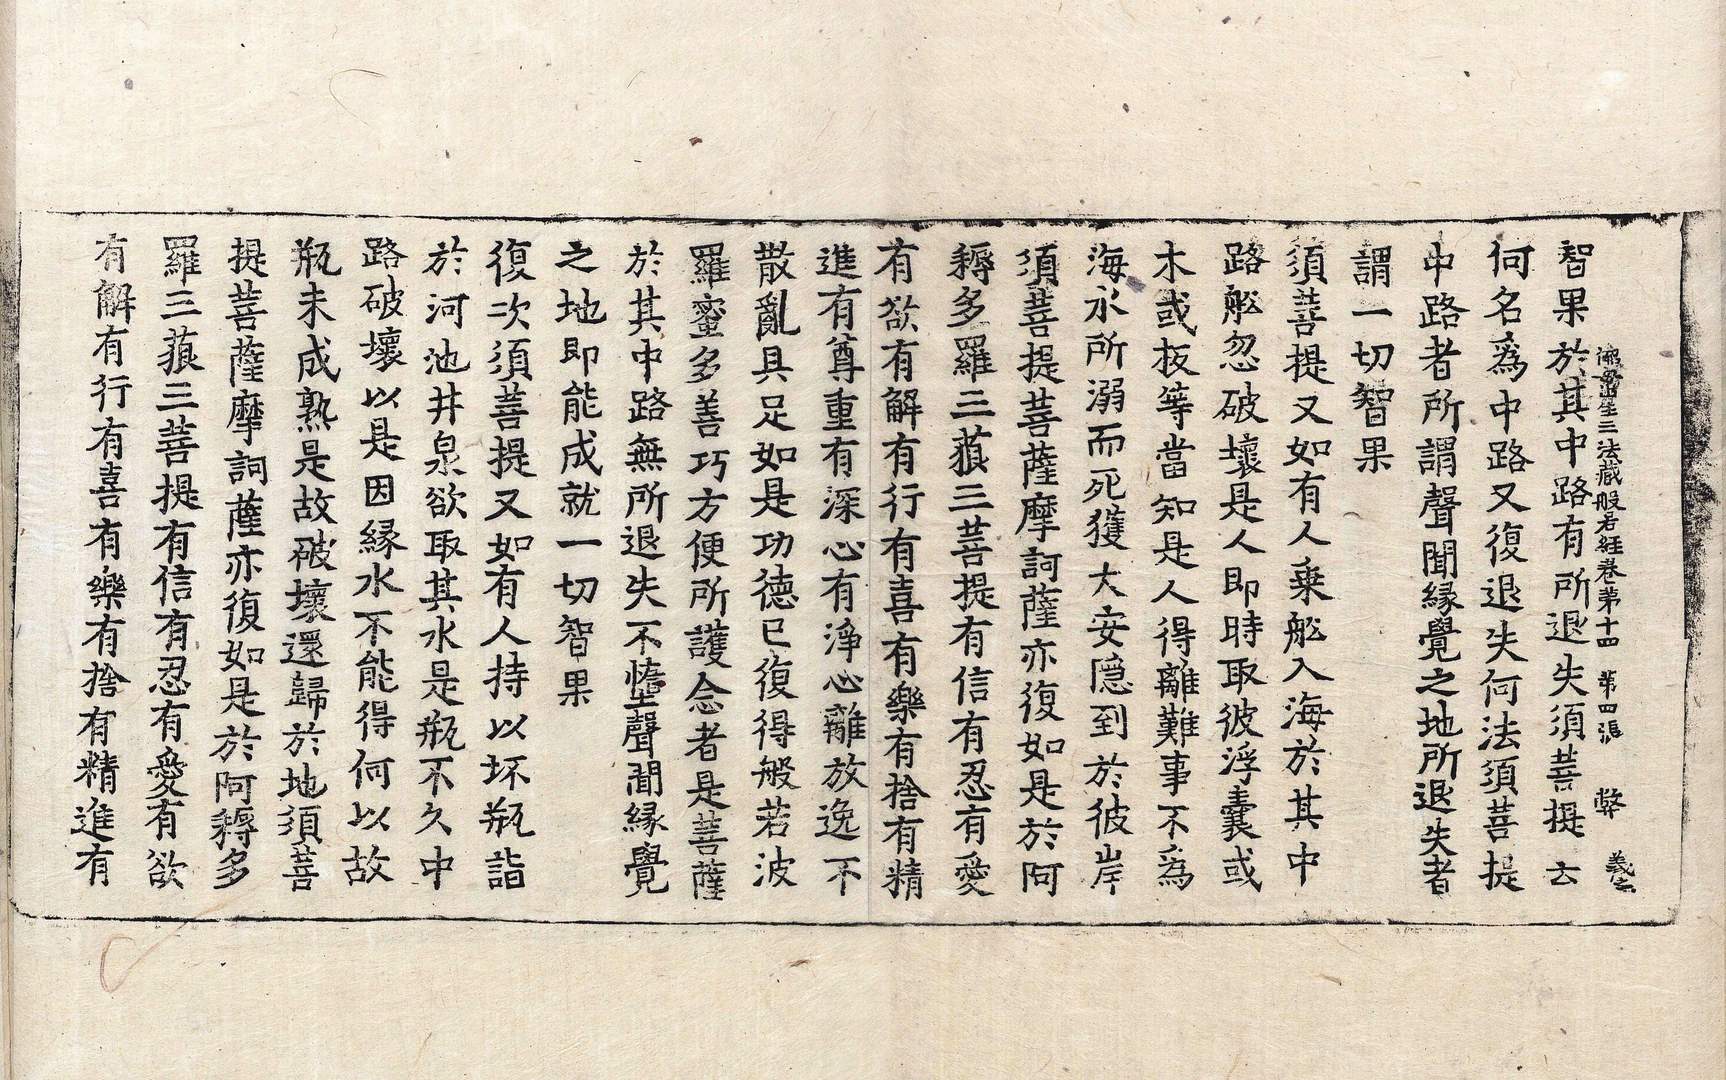 佛母出生三法藏般若經卷第十四 第四張 弊 義玄
智果於其中路有所退失須菩提云
何名爲中路又復退失何法須菩提
中路者所謂聲聞緣覺之地所退失者
謂一切智果
須菩提又如有人乗舩入海於其中
路舩忽破壞是人即時取彼浮囊或
木或板等當知是人得離難事不為
海水所溺而死獲大安隱到於彼岸
須菩提菩薩摩訶薩亦復如是於阿
耨多羅三藐三菩提有信有忍有愛
有欲有解有行有喜有樂有捨有精
進有尊重有深心有淨心離放逸不
散亂具足如是功德已復得般若波
羅蜜多善巧方便所護念者是菩薩
於其中路無所退失不墮聲聞緣覺
之地即能成就一切智果
復次須菩提又如有人持以坏瓶詣
於河池井泉欲取其水是瓶不久中
路破壞以是因緣水不能得何以故
瓶未成熟是故破壞還歸於地須菩
提菩薩摩訶薩亦復如是於阿耨多
羅三藐三菩提有信有忍有愛有欲
有解有行有喜有樂有捨有精進有